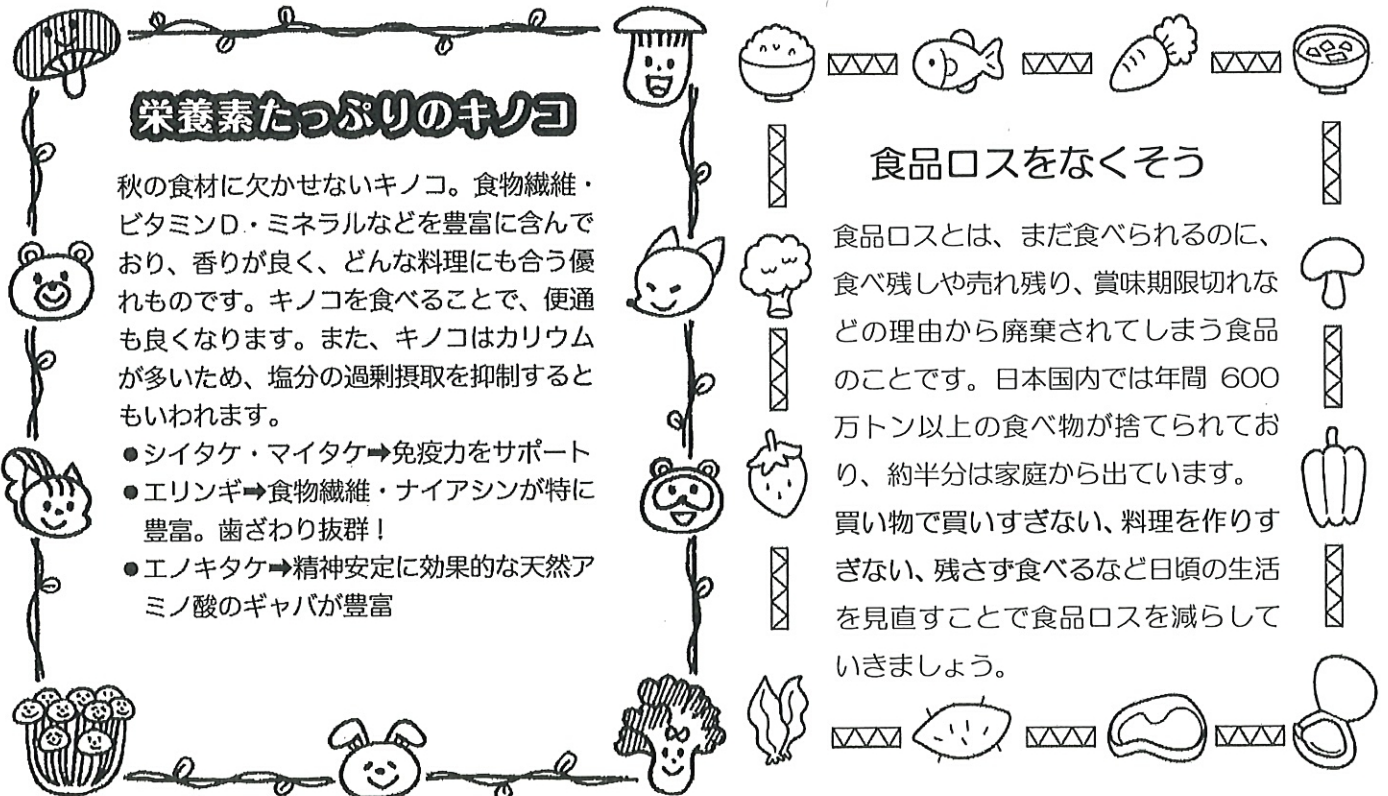 栄養素たっぷりのキノコ
秋の食材に欠かせないキノコ。食物繊維・
ビタミンD・ミネラルなどを豊富に含んで
おり、香りが良く、どんな料理にも合う優
れものです。キノコを食べることで、便通
も良くなります。また、キノコはカリウム
が多いため、塩分の過剰摂取を抑制すると
もいわれます。
●シイタケ・マイタケ➡免疫力をサポート
●エリンギ➡食物繊維・ナイアシンが特に
豊富。歯ざわり抜群！
●エノキタケ➡精神安定に効果的な天然ア
ミノ酸のギャバが豊富
食品ロスをなくそう
食品ロスとは、まだ食べられるのに、
食べ残しや売れ残り、賞味期限切れな
どの理由から廃棄されてしまう食品
のことです。日本国内では年間 600
万トン以上の食べ物が捨てられてお
り、約半分は家庭から出ています。
買い物で買いすぎない、料理を作りす
ぎない、残さず食べるなど日頃の生活
を見直すことで食品ロスを減らして
いきましょう。